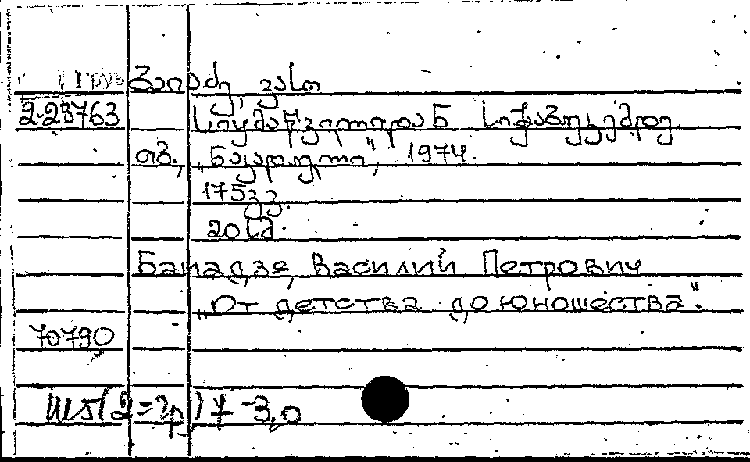 ბაიაძე, ვასო
2-23763 სიყმაწვილიდან სიჭაბუკემდე
თბ., „ნაკადული", 1974.
175 გვ.
20 სმ.
Баиадзе, Василий Петрович
„От детства до юношества".
70790